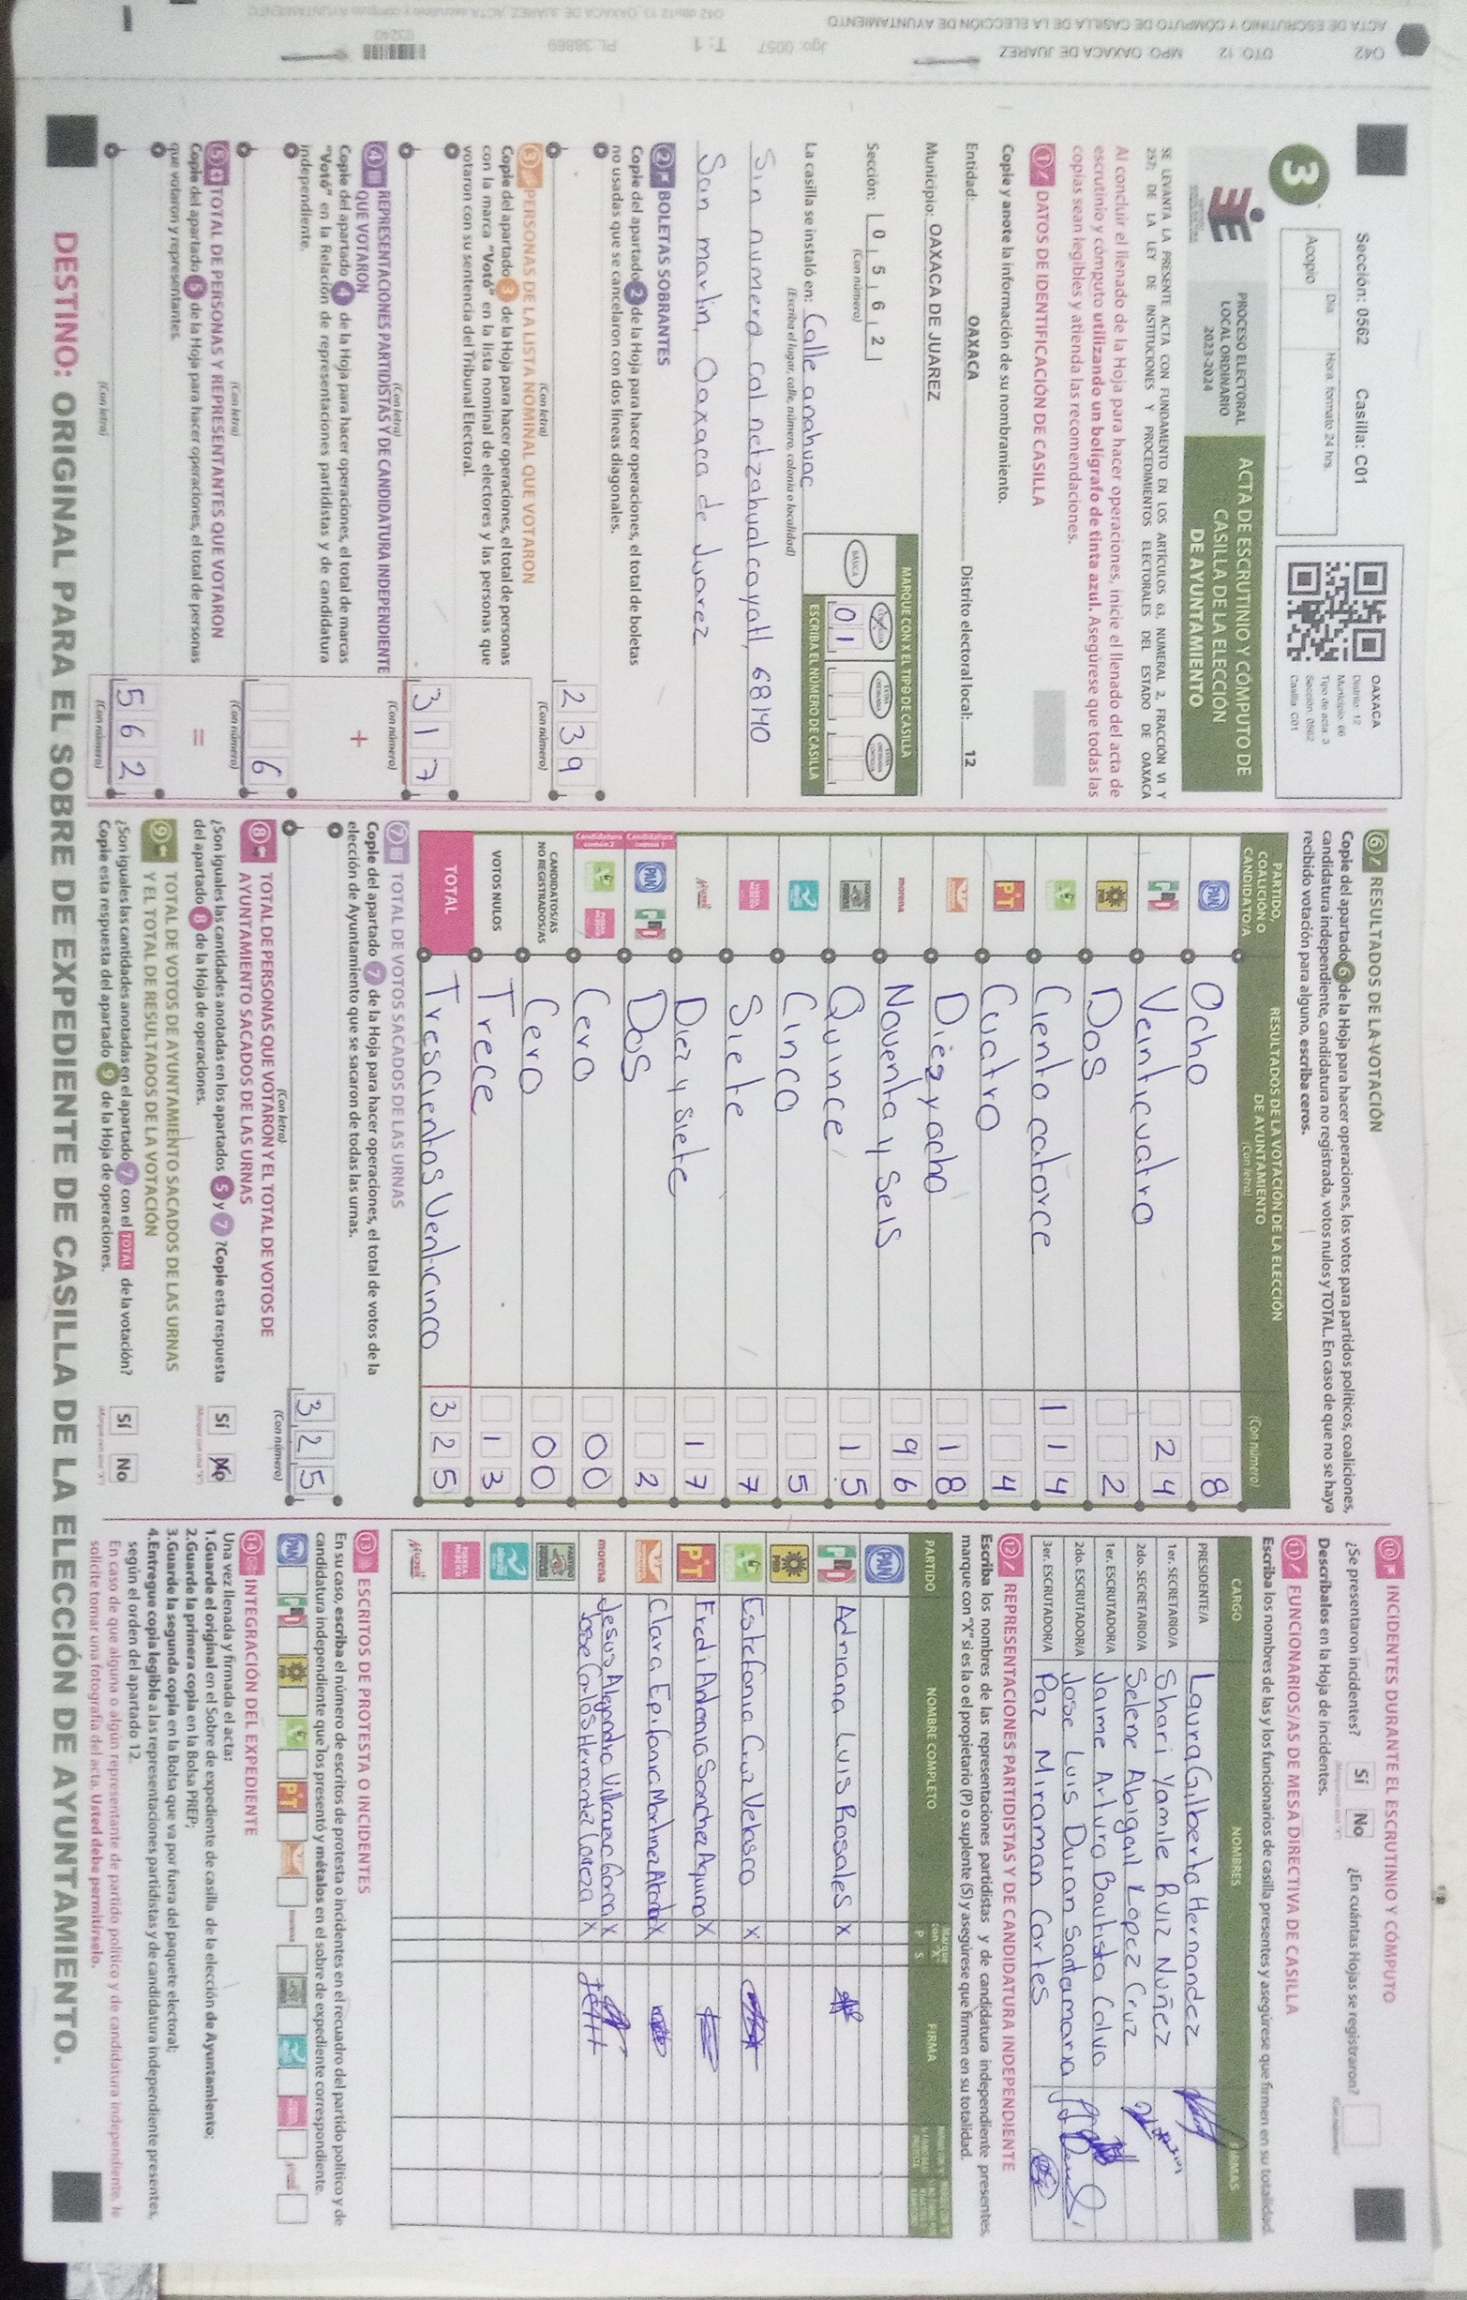 Sección: 0562 Casilla: C01
3
Acopio
Día
Hora: formato 24 hrs.
OAXACA
Distrito: 12
Municipio: 66
Tipo de acta: 3
Sección: 0562
Casilla: C01
PROCESO ELECTORAL
LOCAL ORDINARIO
2023-2024
ACTA DE ESCRUTINIO Y CÓMPUTO DE
CASILLA DE LA ELECCIÓN
DE AYUNTAMIENTO
SE LEVANTA LA PRESENTE ACTA CON FUNDAMENTO EN LOS ARTÍCULOS 63, NUMERAL 2, FRACCIÓN VI Y
257; DE LA LEY DE INSTITUCIONES Y PROCEDIMIENTOS ELECTORALES DEL ESTADO DE OAXACA
Al concluir el llenado de la Hoja para hacer operaciones, inicie el llenado del acta de
escrutinio y cómputo utilizando un bolígrafo de tinta azul. Asegúrese que todas las
copias sean legibles y atienda las recomendaciones.
1 DATOS DE IDENTIFICACIÓN DE CASILLA
Copie y anote la información de su nombramiento.
Entidad: OAXACA Distrito electoral local: 12
Municipio: OAXACA DE JUAREZ
Sección: 0 5 6 2
(Con número)
MARQUE CON X EL TIPO DE CASILLA
BÁSICA
01
ESCRIBA EL NÚMERO DE CASILLA
La casilla se instaló en: Calle anahuac
(Escriba el lugar, calle, número, colonia o localidad)
Sin numero col netzahualcoyotl, 68140
San martin, Oaxaca de Juarez
2 BOLETAS SOBRANTES
Copie del apartado 2 de la Hoja para hacer operaciones, el total de boletas
no usadas que se cancelaron con dos líneas diagonales.
239
(Con letra) (Con número)
3 PERSONAS DE LA LISTA NOMINAL QUE VOTARON
Copie del apartado 3 de la Hoja para hacer operaciones, el total de personas
con la marca "Votó" en la lista nominal de electores y las personas que
votaron con su sentencia del Tribunal Electoral.
317
(Con letra) (Con número)
4 REPRESENTACIONES PARTIDISTAS Y DE CANDIDATURA INDEPENDIENTE
QUE VOTARON
+
Copie del apartado 4 de la Hoja para hacer operaciones, el total de marcas
"Votó" en la Relación de representaciones partidistas y de candidatura
independiente.
6
(Con letra) (Con número)
5 TOTAL DE PERSONAS Y REPRESENTANTES QUE VOTARON
=
Copie del apartado 5 de la Hoja para hacer operaciones, el total de personas
que votaron y representantes.
562
(Con letra) (Con número)
6 RESULTADOS DE LA VOTACIÓN
Copie del apartado 6 de la Hoja para hacer operaciones, los votos para partidos políticos, coaliciones,
candidatura independiente, candidatura no registrada, votos nulos y TOTAL. En caso de que no se haya
recibido votación para alguno, escriba ceros.
PARTIDO,
COALICIÓN O
CANDIDATO/A
RESULTADOS DE LA VOTACIÓN DE LA ELECCIÓN
DE AYUNTAMIENTO
(Con letra) (Con número)
PAN Ocho 8
PRI Veinticuatro 24
Dos 2
Ciento catorce 114
PT Cuatro 4
Diez y ocho 18
morena Noventa y Seis 96
Quince 15
Cinco 5
Siete 7
Diez y Siete 17
Candidatura común 1
PAN PRI Dos 2
Candidatura común 2
Cero 00
CANDIDATOS/AS
NO REGISTRADOS/AS Cero 00
VOTOS NULOS Trece 13
TOTAL Trescientos Venticinco 325
7 TOTAL DE VOTOS SACADOS DE LAS URNAS
Copie del apartado 7 de la Hoja para hacer operaciones, el total de votos de la
elección de Ayuntamiento que se sacaron de todas las urnas.
325
(Con letra) (Con número)
8 TOTAL DE PERSONAS QUE VOTARON Y EL TOTAL DE VOTOS DE
AYUNTAMIENTO SACADOS DE LAS URNAS
¿Son iguales las cantidades anotadas en los apartados 5 y 7 ?Copie esta respuesta
del apartado 8 de la Hoja de operaciones.
Sí No
9 TOTAL DE VOTOS DE AYUNTAMIENTO SACADOS DE LAS URNAS
Y EL TOTAL DE RESULTADOS DE LA VOTACIÓN
¿Son iguales las cantidades anotadas en el apartado 7 con el TOTAL de la votación?
Copie esta respuesta del apartado 9 de la Hoja de operaciones.
Sí No
10 INCIDENTES DURANTE EL ESCRUTINIO Y CÓMPUTO
¿Se presentaron incidentes? Sí No ¿En cuántas Hojas se registraron?
Descríbalos en la Hoja de incidentes.
11 FUNCIONARIOS/AS DE MESA DIRECTIVA DE CASILLA
Escriba los nombres de las y los funcionarios de casilla presentes y asegúrese que firmen en su totalidad.
CARGO NOMBRES FIRMAS
PRESIDENTE/A Laura Gilberta Hernandez
1er. SECRETARIO/A Shari Yamile Ruiz Nuñez
2do. SECRETARIO/A Selene Abigail Lopez Cruz
1er. ESCRUTADOR/A Jaime Arturo Bautista Calvo
2do. ESCRUTADOR/A Jose Luis Duran Santamaria
3er. ESCRUTADOR/A Paz Miraman Cortes
12 REPRESENTACIONES PARTIDISTAS Y DE CANDIDATURA INDEPENDIENTE
Escriba los nombres de las representaciones partidistas y de candidatura independiente presentes,
marque con "X" si es la o el propietario (P) o suplente (S) y asegúrese que firmen en su totalidad.
PARTIDO NOMBRE COMPLETO Marque con "X" P S FIRMA
PAN
PRI Adriana Luis Rosales X
Estefania Cruz Velasco X
PT Fredi Antonio Sanchez Aquino X
Clara Epifania Martinez X
morena Jesus Alejandro Villavicencio Garcia X
Jose Carlos Hernandez X
13 ESCRITOS DE PROTESTA O INCIDENTES
En su caso, escriba el número de escritos de protesta o incidentes en el recuadro del partido político y de
candidatura independiente que los presentó y métalos en el sobre de expediente correspondiente.
PAN PRI PT morena
14 INTEGRACIÓN DEL EXPEDIENTE
Una vez llenada y firmada el acta:
1.Guarde el original en el Sobre de expediente de casilla de la elección de Ayuntamiento;
2.Guarde la primera copia en la Bolsa PREP;
3.Guarde la segunda copia en la Bolsa que va por fuera del paquete electoral;
4.Entregue copia legible a las representaciones partidistas y de candidatura independiente presentes,
según el orden del apartado 12.
En caso de que alguna o algún representante de partido político y de candidatura independiente, le
solicite tomar una fotografía del acta. Usted debe permitírselo.
DESTINO: ORIGINAL PARA EL SOBRE DE EXPEDIENTE DE CASILLA DE LA ELECCIÓN DE AYUNTAMIENTO.
042 DTO. 12 MPO. OAXACA DE JUAREZ
ACTA DE ESCRUTINIO Y CÓMPUTO DE CASILLA DE LA ELECCIÓN DE AYUNTAMIENTO
Jgo: 0057 T: 1 PL: 38869